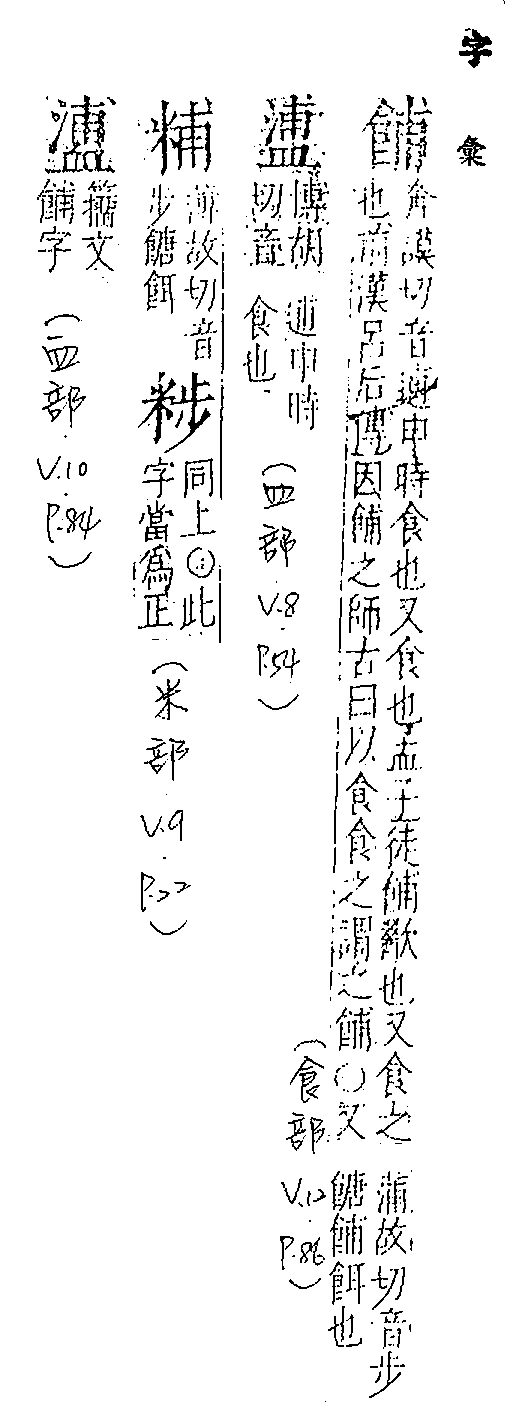 字彙
餔 奔謨切音逋申時食也又食也孟子徒餔歠也又食之
也前漢呂后傳因餔之師古曰以食食之謂之餔○又
蒲故切音步
餹餔餌也
(食部 V.12 P.86)
博胡
切音
逋申時
食也
(皿部 V.8 P.54)
䊇 蒲故切音
步餹餌
同上○此
字當爲正
(米部 V.9 P.22)
籀文
餔字
(皿部 V.10 P.84)